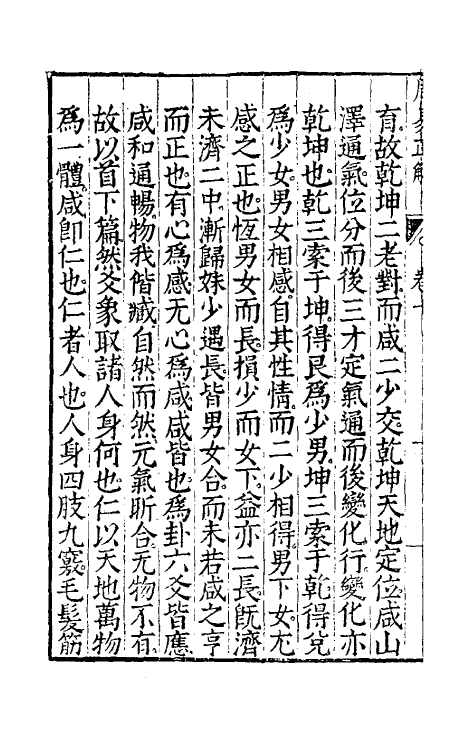 周易正解
卷十
育。故乾坤二老對。而咸二少交。乾坤天地定位。咸山
澤通氣。位分而後三才定。氣通而後變化行。變化亦
乾坤也。乾三索于坤。得艮爲少男。坤三索于乾。得兌
爲少女。男女相感。自其性情。而二少相得。男下女。尤
感之正也。恆男女而長。損少而女下。益亦二長。既濟
未濟二中。漸歸妹少遇長。皆男女合。而未若咸之亨
而正也。有心爲感。无心爲咸。咸皆也。爲卦六爻皆應
咸和通暢。物我偕臧。自然而然。元氣昕合。无物不有
故以首下篇。然爻象取諸人身何也。仁以天地萬物
爲一體。咸卽仁也。仁者人也。人身四肢九竅。毛髮筋